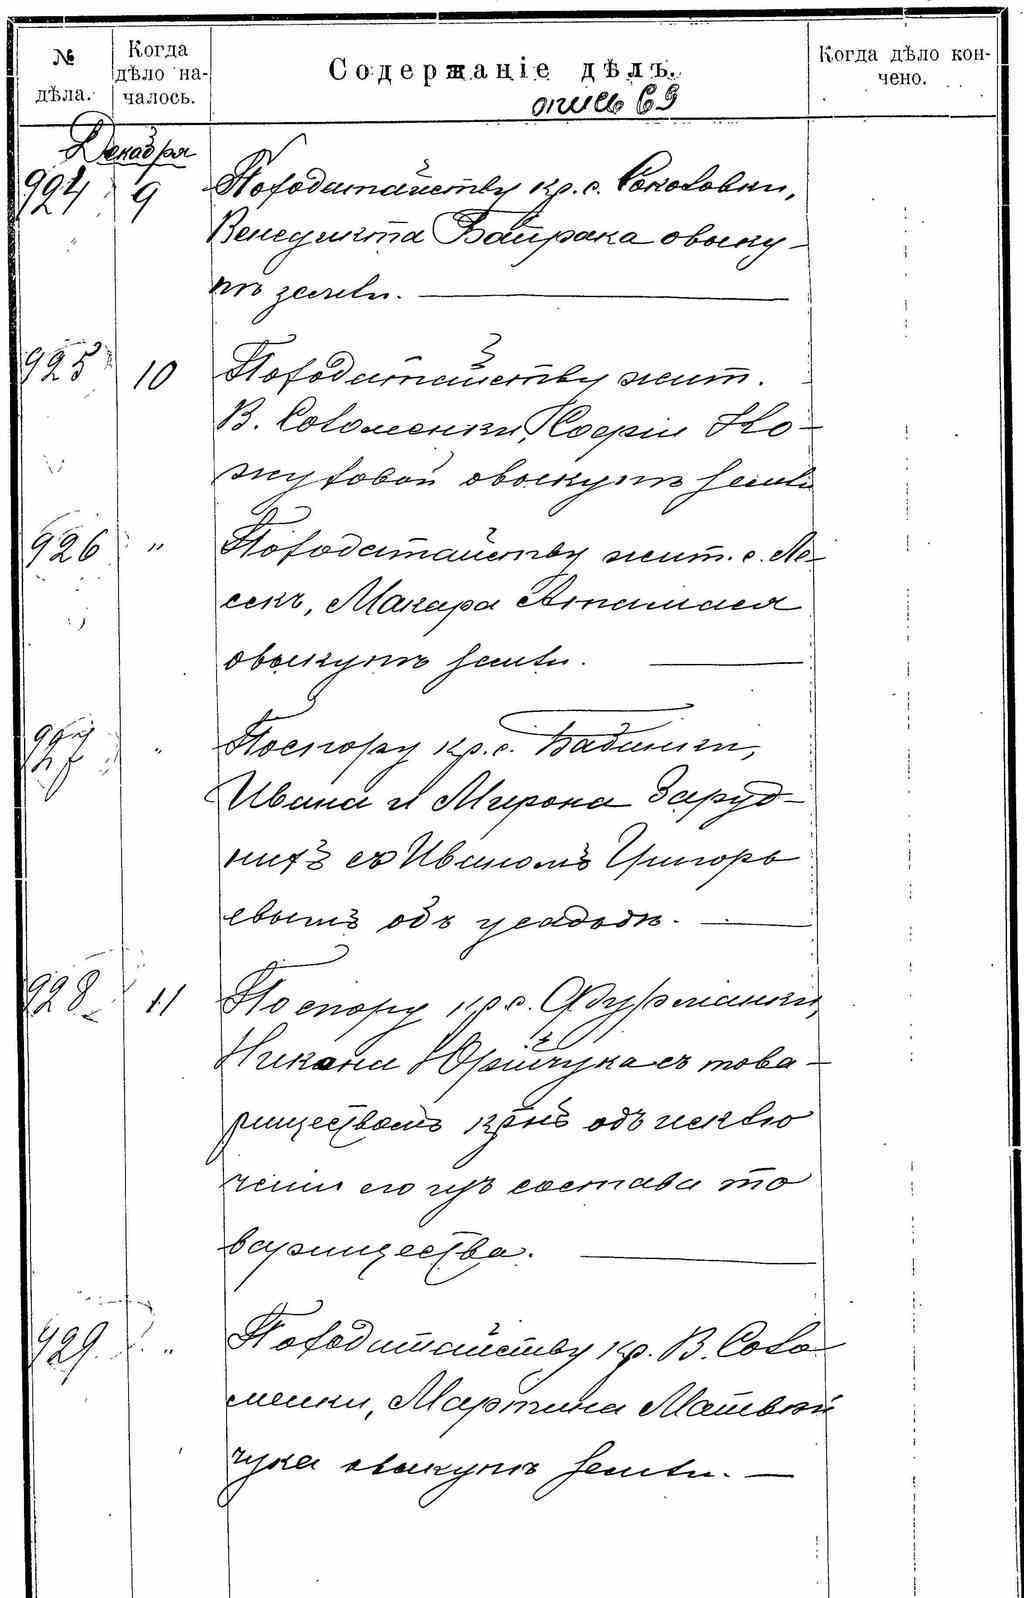 № дѣла.
Когда дѣло на-
чалось.
Содержаніе дѣлъ.
Когда дѣло кон-
чено.
опись 69
Декабря
924 9 По ходатайству кр. с. Соколовки,
Венедикта Байрака о выку-
пѣ земли.
925 10 По ходатайству жит.
В. Соломенки, Софіи Ко-
жуховой о выкупѣ земли
926 " По ходатайству жит. с. Ле-
секъ, Макара
о выкупѣ земли.
927 " По спору кр. с. Бабинки,
Ивана и Мирона Заруд-
нихъ съ Иваномъ Григорь
евымъ объ усадьбѣ.
928 11 По спору кр. с. Фурманки,
Юрійчука съ това-
риществомъ кр-нъ объ исклю
ченіи его изъ состава то
варищества.
929 " По ходатайству кр. В. Соло
менки, Мартина Матвѣй
чука о выкупѣ земли.